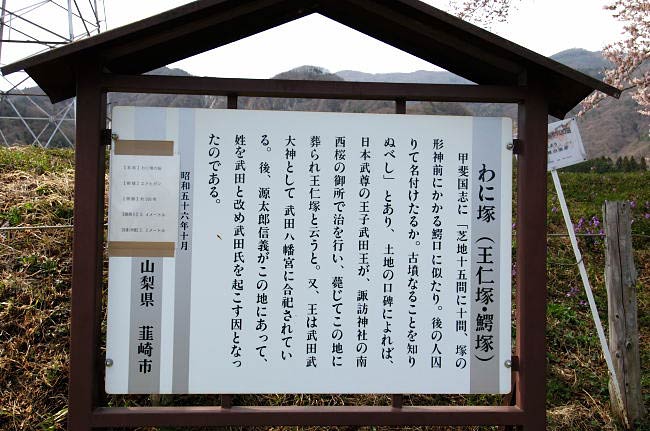 わに塚（王仁塚・鰐塚）
甲斐国志に「芝地十五間に十間、塚の
形神前にかかる鰐口に似たり。後の人因
りて名付けたるか。古墳なることを知り
ぬべし」とあり、土地の口碑によれば、
日本武尊の王子武田王が、諏訪神社の南
西桜の御所で治を行い、薨じてこの地に
葬られ王仁塚と云うと。又、王は武田武
大神として 武田八幡宮に合祀されてい
る。後、源太郎信義がこの地にあって、
姓を武田と改め武田氏を起こす因となっ
たのである。
昭和五十六年十月
山梨県 韮崎市